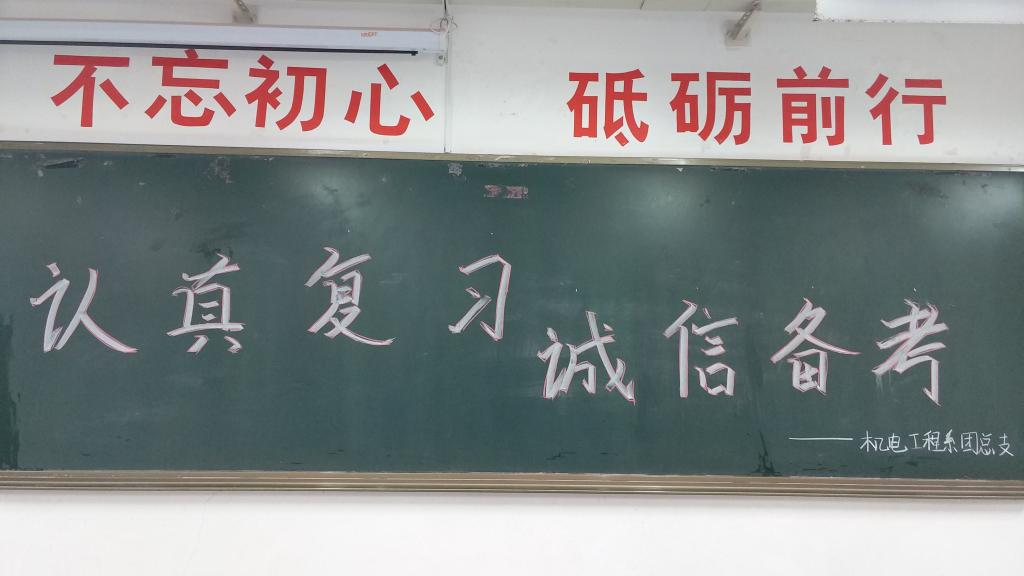 不忘初心 砥砺前行
认真复习
诚信备考
——机电工程系团总支